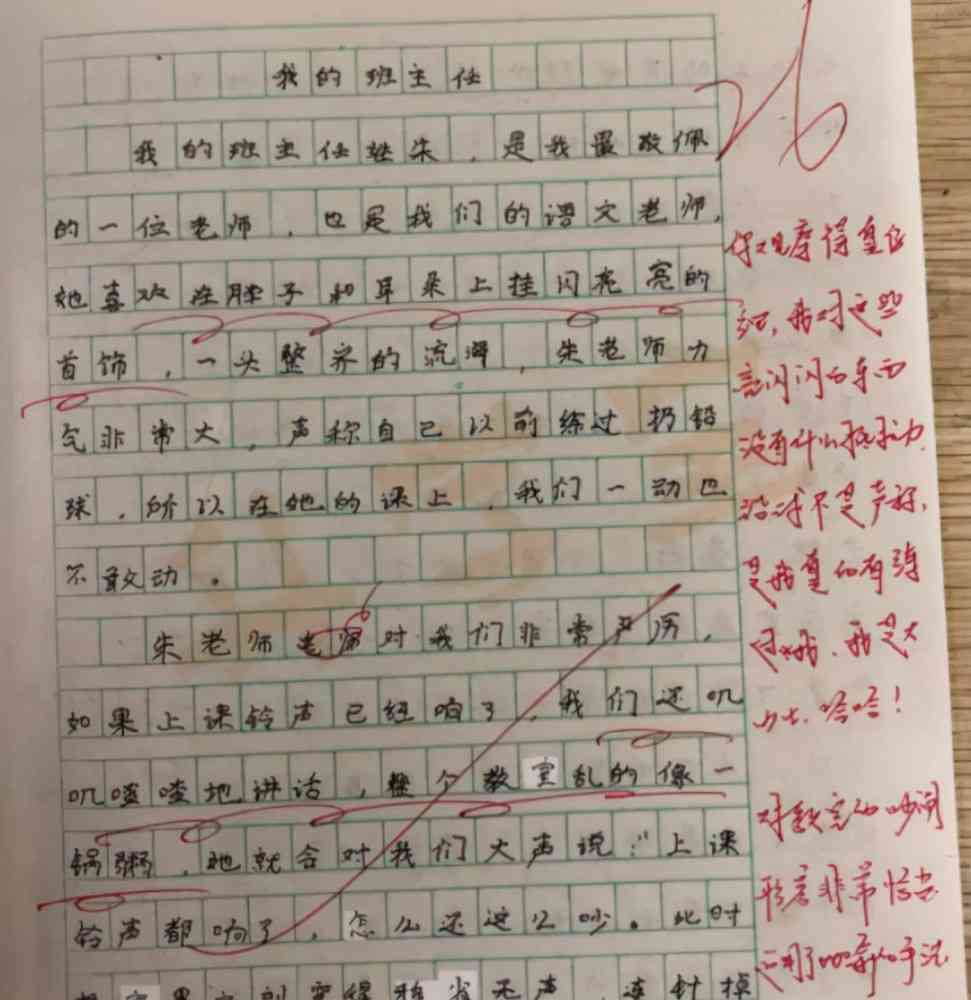 我的班主任
26
我的班主任姓朱，是我最敬佩
的一位老师，也是我们的语文老师，
她喜欢在脖子和耳朵上挂闪亮亮的
首饰，一头整齐的流海，朱老师力
气非常大，声称自己以前练过扔铅
球，所以在她的课上，我们一动也
不敢动。
朱老师老师对我们非常严厉，
如果上课铃声已经响了，我们还叽
叽喳喳地讲话，整个教室乱的像一
锅粥，她就会对我们大声说："上课
铃声都响了，怎么还这么吵。此时
室里立刻变得鸦雀无声，连针掉
你观察得
我对这些
闪闪的东西
没有什么抵抗力
不是声称，
是我真的有练
过哦，我是大
力士，哈哈！
对教室的吵闹
形容非常恰当
用了的手法